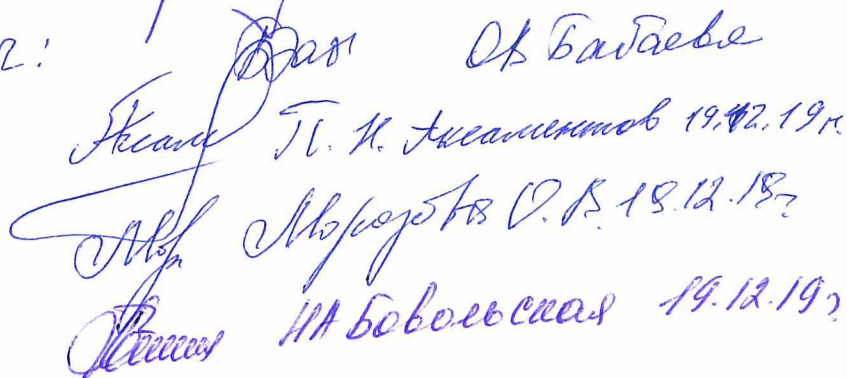 г:
ОВ Бабаева
П. Н. Аксаментов 19.12.19г.
Морозова О. В. 19.12.19г
НА Бовольская 19.12.19г